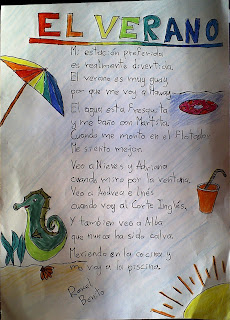 EL VERANO
Mi estación preferida
es realmente divertida.
El verano es muy guay
por que me voy a Hawai.
El agua esta fresquita
y me baño con Martita.
Cuando me monto en el flotador
Me siento mejor.
Veo a Nieves y Adriana
cuando miro por la ventana.
Veo a Andrea e Inés
cuando voy al Corte Inglés.
Y tambien veo a Alba
que nunca ha sido calva.
Meriendo en la cocina y
me voy a la piscina.
Benito